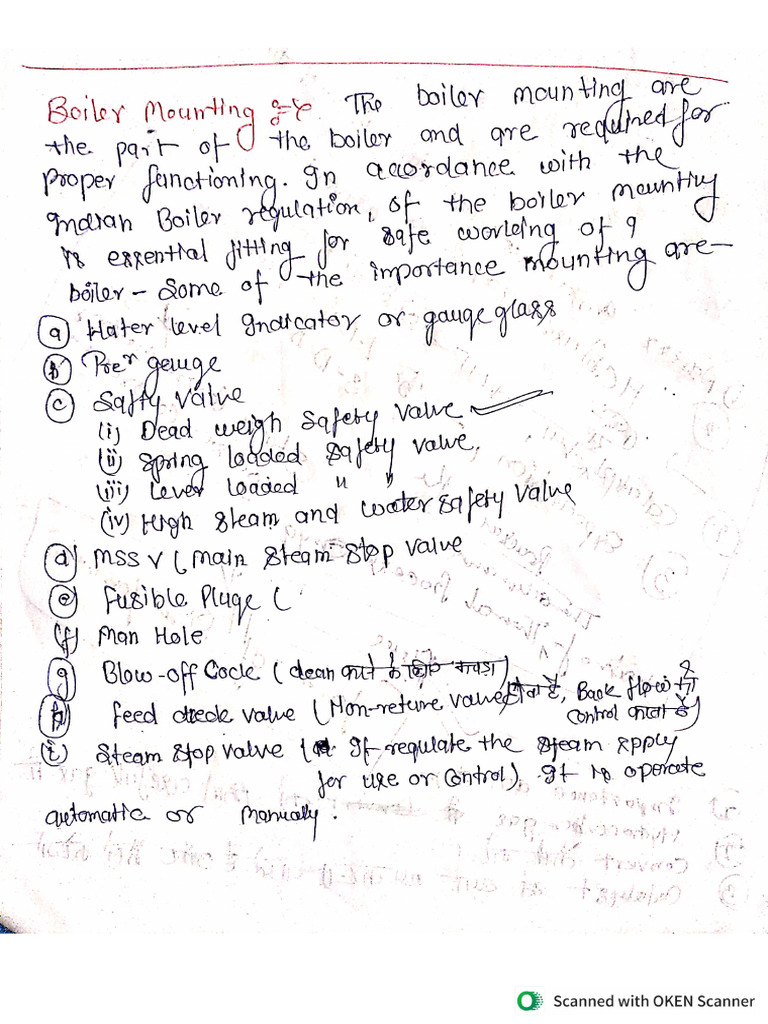 Boiler Mounting :- The boiler mounting are
the part of the boiler and are required for
Proper functioning. In accordance with the
Indian Boiler regulation, of the boiler mounting
is essential fitting for safe working of a
boiler - Some of the importance mounting are -
(a) Water level Indicator or gauge glass
(b) Preⁿ geuge
(c) Safty Valve
(i) Dead weigh Safety Valve
(ii) Spring loaded Safety valve.
(iii) Lever Loaded " "
(iv) High Steam and water safety Valve
(d) MSSV (Main Steam Stop Valve
(e) Fusible Pluge (
(f) Man Hole
(g) Blow-off Cock (clean करने के लिए कचड़ा)
(h) feed check valve (Non-return valve होता है, Back flow को
control करता है)
(i) Steam Stop Valve ( It regulate the Steam spply
for use or control). It is operate
automatic or manualy.
Scanned with OKEN Scanner